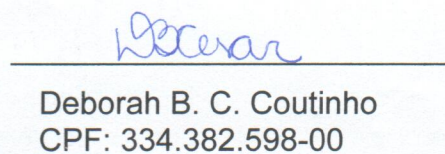 DBCesar
Deborah B. C. Coutinho
CPF: 334.382.598-00